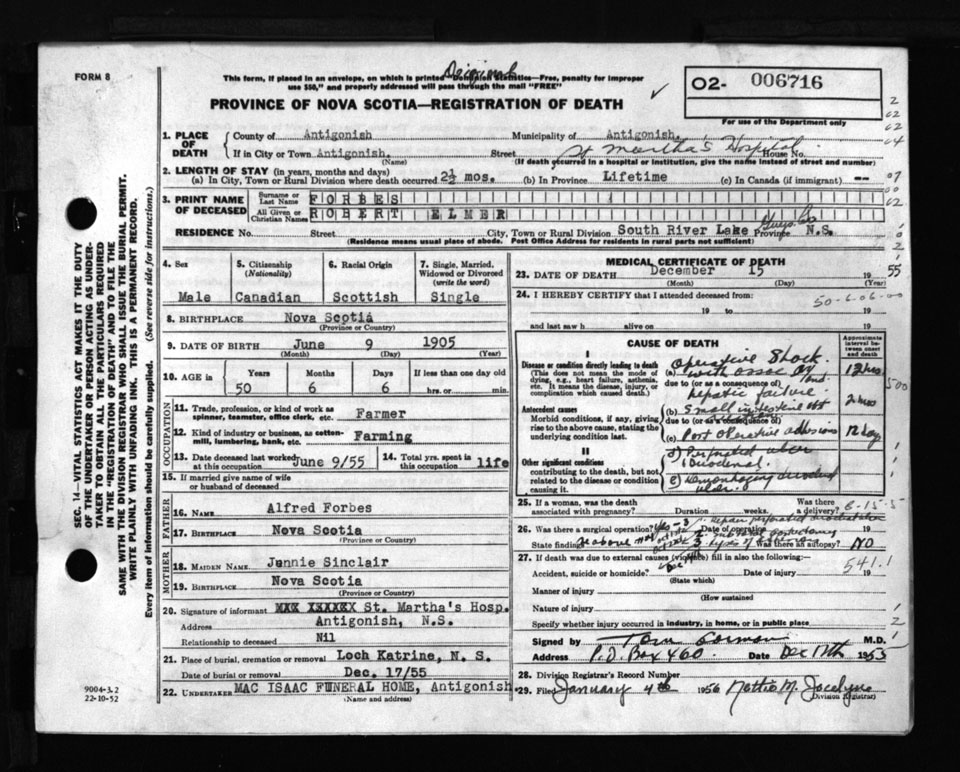 FORM 8
This form, if placed in an envelope, on which is printed Dominion Statistics—Free, penalty for improper
use $50," and properly addressed will pass through the mail "FREE"
PROVINCE OF NOVA SCOTIA—REGISTRATION OF DEATH
✓
O2- 006716
For use of the Department only
1. PLACE OF DEATH
County of Antigonish Municipality of Antigonish.
If in City or Town Antigonish. Street St Martha's Hospital House No.
(Name) (If death occurred in a hospital or institution, give the name instead of street and number)
2. LENGTH OF STAY (in years, months and days)
(a) In City, Town or Rural Division where death occurred 2½ mos. (b) In Province Lifetime (c) In Canada (if immigrant) --
3. PRINT NAME OF DECEASED
Surname or Last Name FORBES
All Given or Christian Names ROBERT ELMER
RESIDENCE No. Street City, Town or Rural Division South River Lake Guys. Co Province N.S.
(Residence means usual place of abode. Post Office Address for residents in rural parts not sufficient)
4. Sex
Male
5. Citizenship (Nationality)
Canadian
6. Racial Origin
Scottish
7. Single, Married, Widowed or Divorced (write the word)
Single
8. BIRTHPLACE Nova Scotia
(Province or Country)
9. DATE OF BIRTH June 9 1905
(Month) (Day) (Year)
10. AGE in Years Months Days If less than one day old
50 6 6 hrs. or min.
OCCUPATION
11. Trade, profession, or kind of work as spinner, teamster, office clerk, etc. Farmer
12. Kind of industry or business, as cotton-mill, lumbering, bank, etc. Farming
13. Date deceased last worked at this occupation June 9/55
14. Total yrs. spent in this occupation life
15. If married give name of wife or husband of deceased
FATHER
16. NAME Alfred Forbes
17. BIRTHPLACE Nova Scotia
(Province or Country)
MOTHER
18. MAIDEN NAME Jennie Sinclair
19. BIRTHPLACE Nova Scotia
(Province or Country)
20. Signature of informant St. Martha's Hosp.
Address Antigonish, N.S.
Relationship to deceased Nil
21. Place of burial, cremation or removal Loch Katrine, N. S.
Date of burial or removal Dec. 17/55
22. UNDERTAKER MAC ISAAC FUNERAL HOME, Antigonish.
(Name and address)
MEDICAL CERTIFICATE OF DEATH
23. DATE OF DEATH December 15 1955
(Month) (Day)
24. I HEREBY CERTIFY that I attended deceased from:
50-6-06-00
19 to 19
and last saw h alive on 19
CAUSE OF DEATH
Approximate interval between onset and death
I
Disease or condition directly leading to death
(This does not mean the mode of dying, e.g., heart failure, asthenia, etc. It means the disease, injury, or complication which caused death.)
(a) Operative Shock.
with assoc
due to (or as a consequence of)
hepatic failure
12 hrs
Antecedent causes
Morbid conditions, if any, giving rise to the above cause, stating the underlying condition last.
(b) Small intestine
due to (or as a consequence of)
(c) Post operative adhesions
12 days
II
Other significant conditions
contributing to the death, but not related to the disease or condition causing it.
d) Perforated ulcer
(Duodenal.
e) Hemorrhaging duodenal
ulcer.
500
25. If a woman, was the death associated with pregnancy? Duration weeks. Was there a delivery?
26. Was there a surgical operation? Yes - 3 Date of operation
State findings Was there an autopsy? NO
27. If death was due to external causes (violence) fill in also the following:—
541.1
Accident, suicide or homicide? Date of injury 19
(State which)
Manner of injury
(How sustained
Nature of injury
Specify whether injury occurred in industry, in home, or in public place
Signed by Tom Gorman M.D.
Address P.O. Box 460. Date Dec 17th 1955
28. Division Registrar's Record Number
29. Filed January 4th 1956 Mattie M. Jocelyn
(Division Registrar)
SEC. 14—VITAL STATISTICS ACT MAKES IT THE DUTY
OF THE UNDERTAKER OR PERSON ACTING AS UNDER-
TAKER TO OBTAIN ALL THE PARTICULARS REQUIRED
IN THE "REGISTRATION OF DEATH" AND TO FILE THE
SAME WITH THE DIVISION REGISTRAR WHO SHALL ISSUE THE BURIAL PERMIT.
WRITE PLAINLY WITH UNFADING INK. THIS IS A PERMANENT RECORD.
Every item of information should be carefully supplied. (See reverse side for instructions.)
9004-3.2
22-10-52